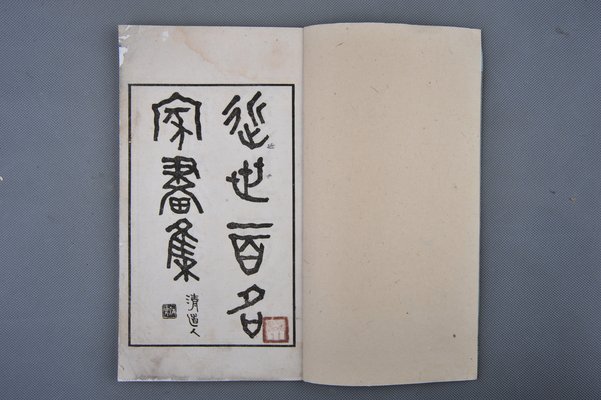 近世百名
家畫集
清道人